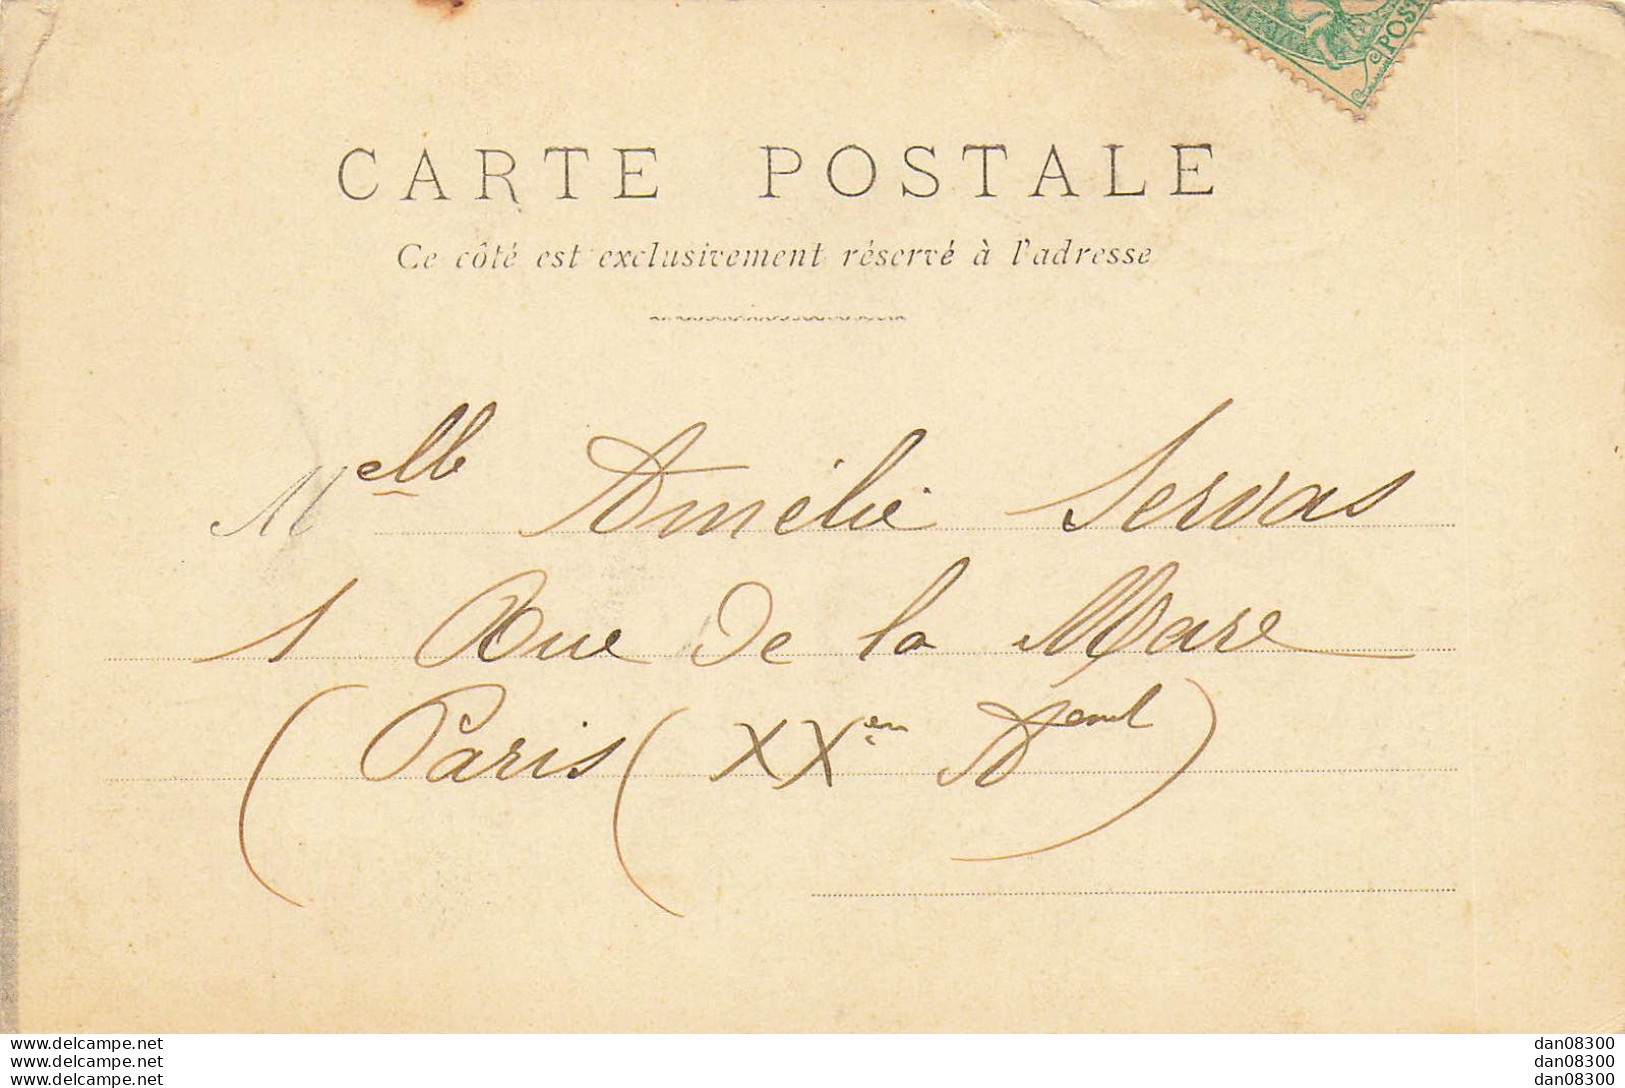 POST
CARTE POSTALE
Ce côté est exclusivement réservé à l'adresse
Melle Amélie Servas
1 Rue de la Mare
(Paris (XXen Arremt)
www.delcampe.net dan08300
www.delcampe.net dan08300
www.delcampe.net dan08300